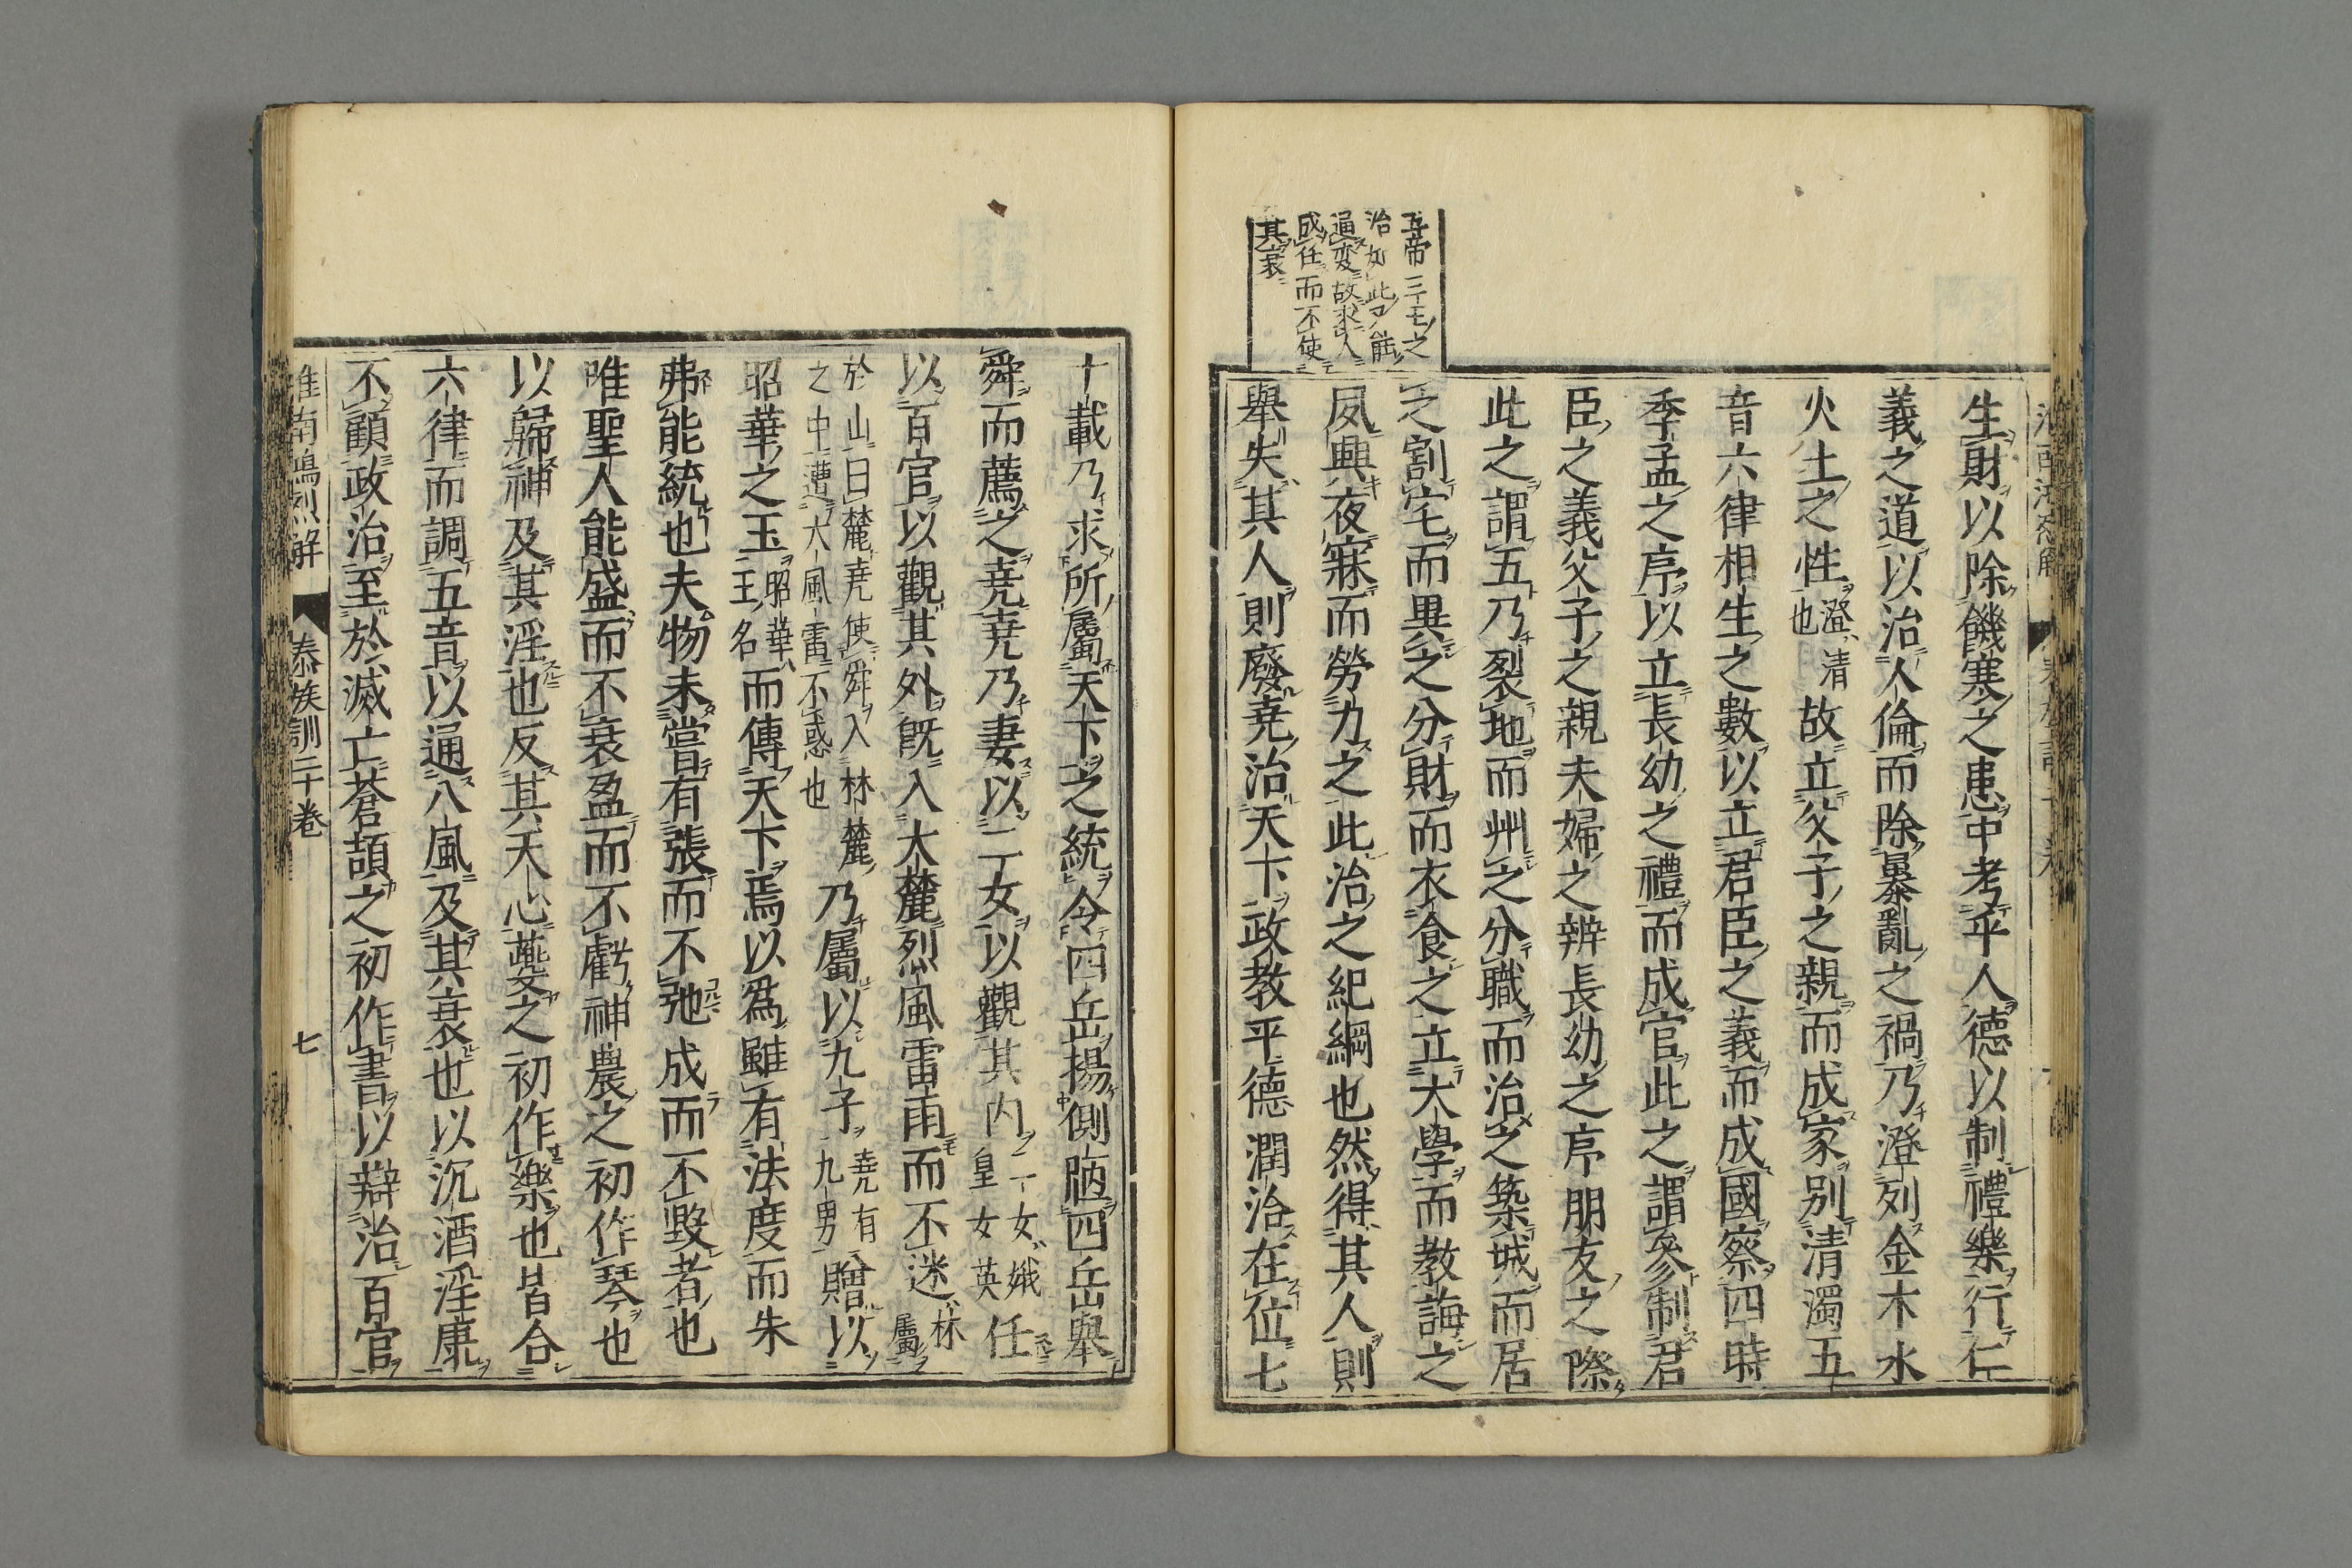 五帝三王之
治如此又能
通変故求人
成任而不使
其衰
生財以除饑寒之患中考乎人德以制禮樂行仁
義之道以治人倫而除暴亂之禍乃澄列金木水
火土之性澄清也故立父子之親而成家別清濁五
音六律相生之數以立君臣之義而成國察四時
季孟之序以立長幼之禮而成官此之謂參制君
臣之義父子之親夫婦之辨長幼之序朋友之際
此之謂五乃裂地而州之分職而治之築城而居
之割宅而異之分財而衣食之立大學而教誨之
夙興夜寐而勞力之此治之紀綱也然得其人則
舉失其人則廢堯治天下政教平德潤洽在位七
十載乃求所屬天下之統令四岳揚側陋四岳舉
舜而薦之堯堯乃妻以二女以觀其内二女娥皇女英任
以百官以觀其外旣入大麓烈風雷雨而不迷林屬
於山曰麓堯使舜入林麓
之中遭大風雷不惑也
乃屬以九子堯有九男贈以
昭華之玉昭華玉名而傳天下焉以爲雖有法度而朱
弗能統也夫物未嘗有張而不弛成而不毀者也
唯聖人能盛而不衰盈而不虧神農之初作琴也
以歸神及其淫也反其天心夔之初作樂也皆合
六律而調五音以通八風及其衰也以沉酒淫康
不顧政治至於滅亡蒼頡之初作書以辯治百官
淮南鴻烈解 泰族訓二十卷 七